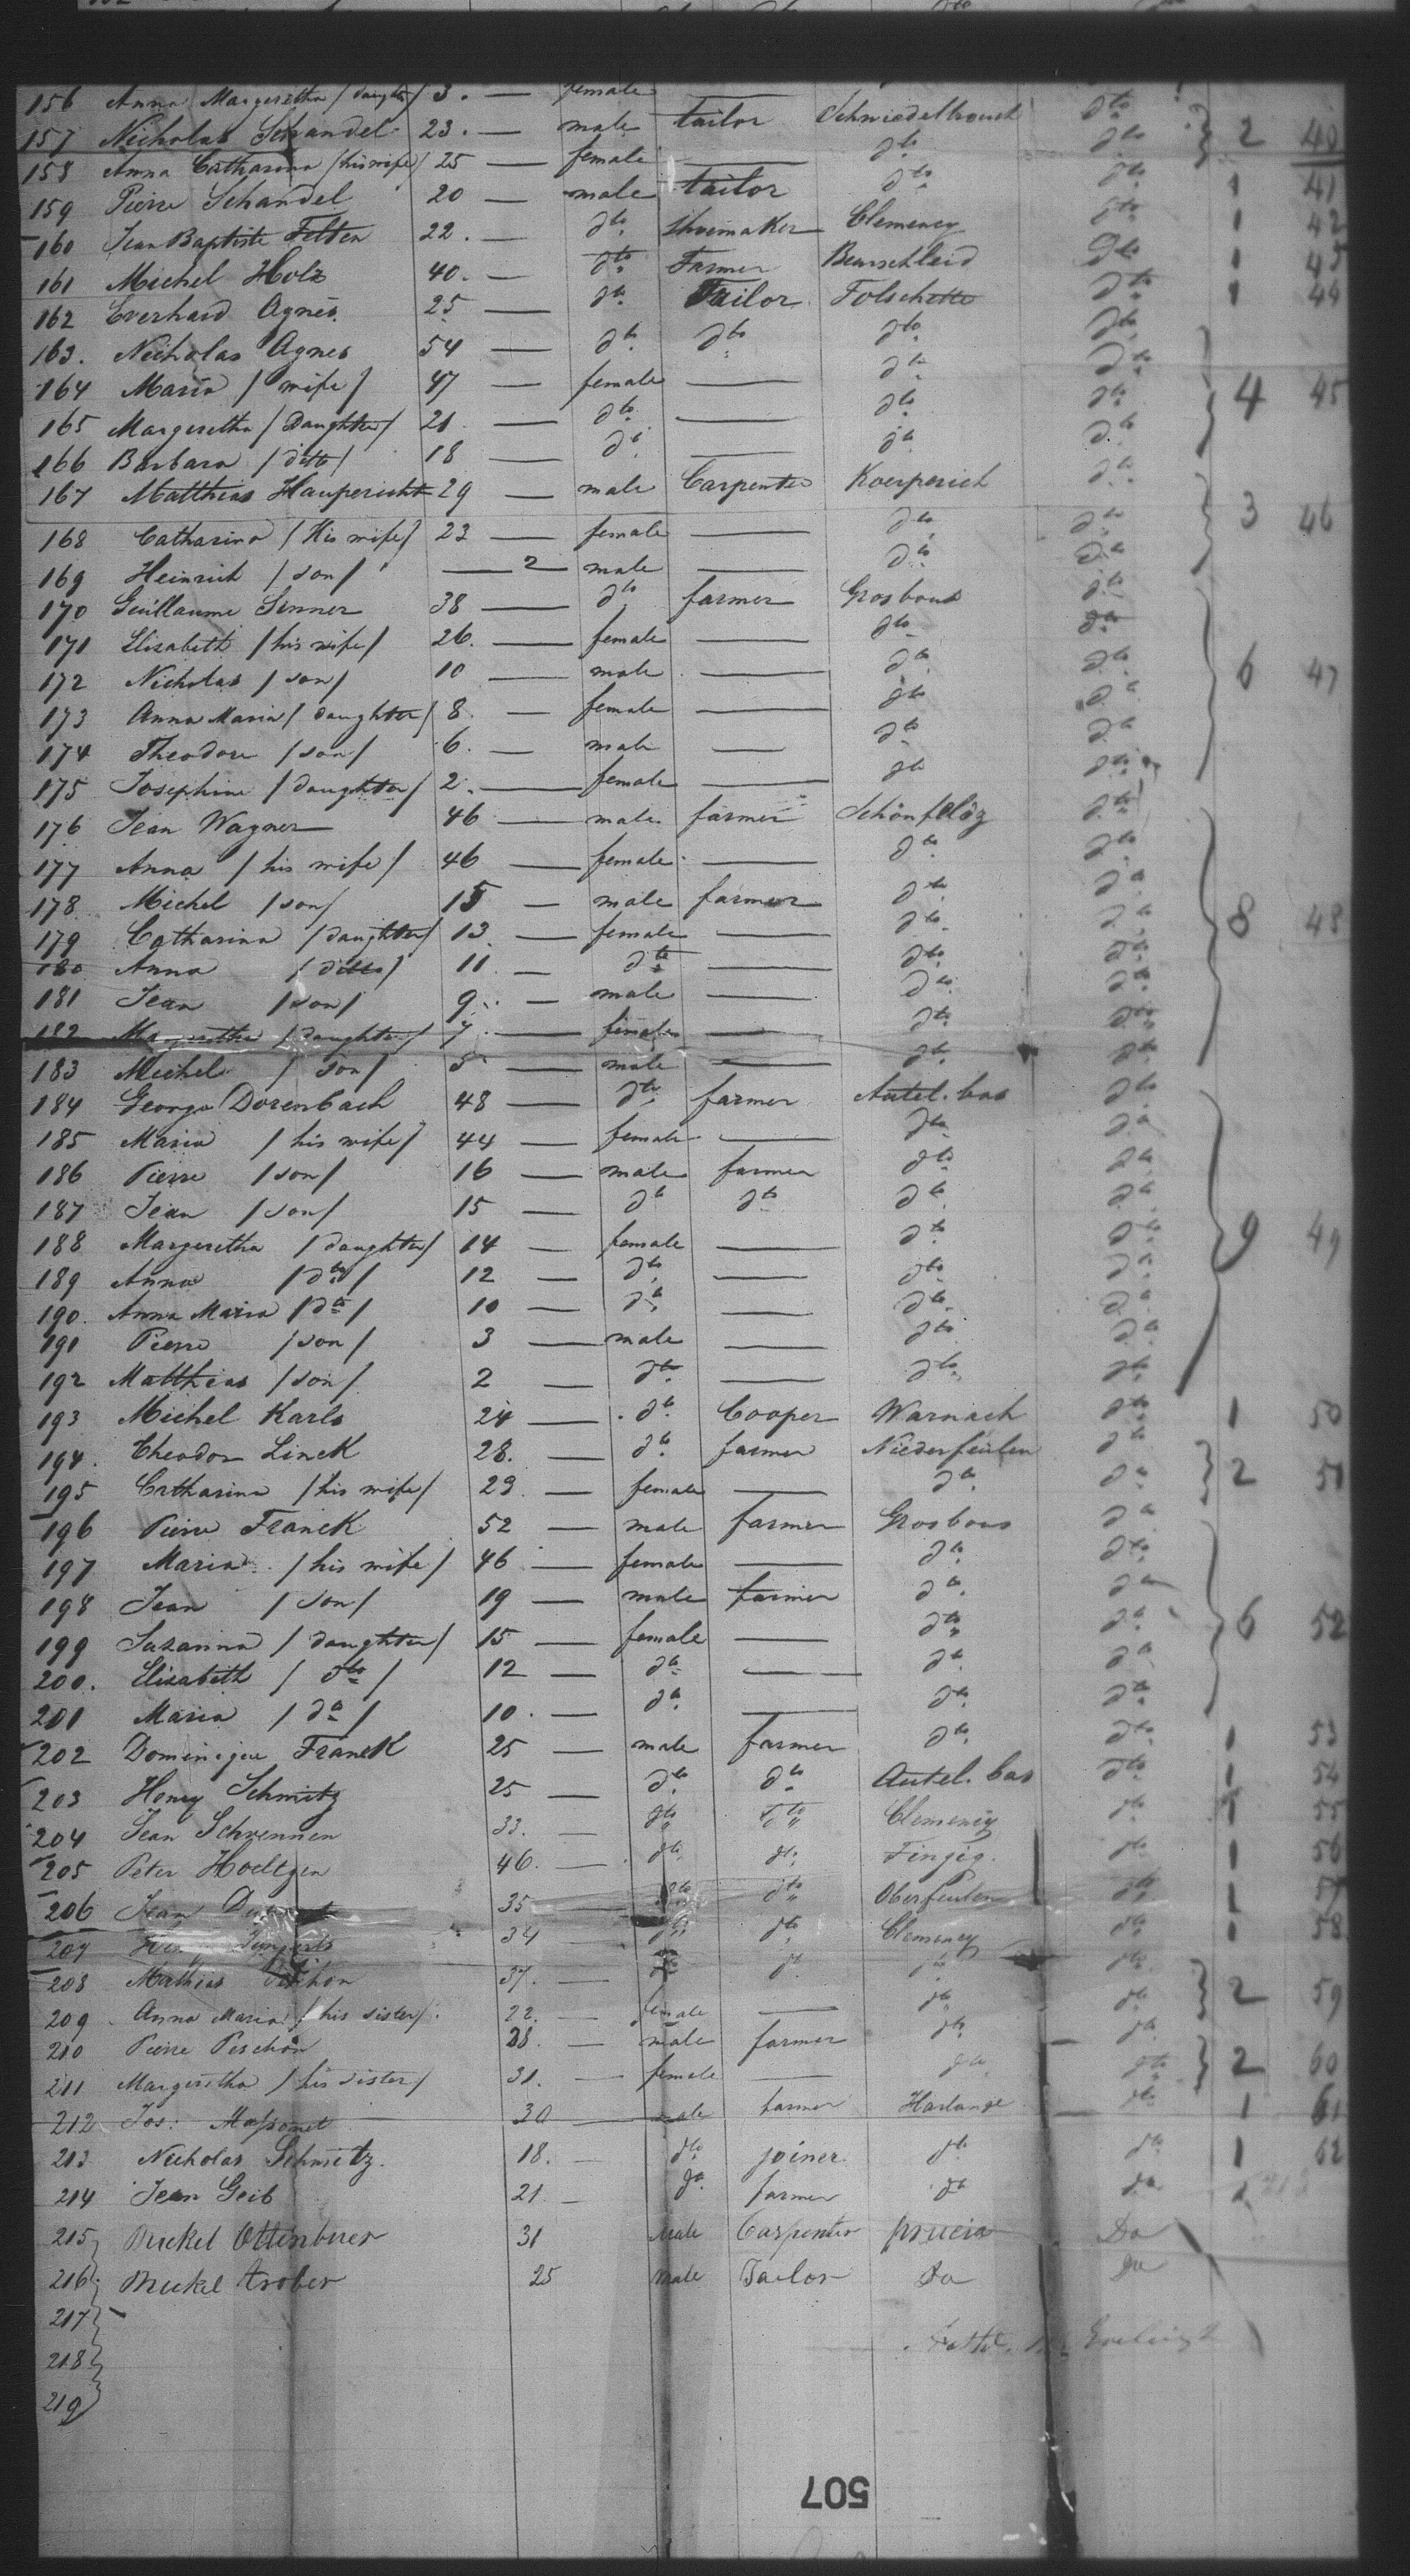 156 Anna Margeretha / daughter / 3. — female —
157 Nicholas Schandel 23. — male tailor Schwiedelbrouch dto 2 40
158 Anna Catharina / his wife / 25 — female — dto dto
159 Pierre Schandel 20 — male tailor dto dto 1 41
160 Jean Baptiste Felten 22. — dto shoemaker Clemency dto 1 42
161 Michel Holz 40. — dto Farmer Beurschleid dto 1 43
162 Everhard Agnes 25 — dto Tailor Folschette dto 1 44
163. Nicholas Agnes 54 — dto dto dto dto
164 Maria / wife / 47 — female — dto dto 4 45
165 Margeretha / Daughter / 21 — dto — dto dto
166 Barbara / ditto / 18 — dto — dto dto
167 Matthias Haupericht 29 — male Carpenter Koerperich dto
168 Catharina / His wife / 23 — female — dto dto 3 46
169 Heinrich / son / — 2 male — dto dto
170 Guillaume Sinner 38 — dto farmer Grosbous dto
171 Elisabeth / his wife / 26. — female — dto dto
172 Nicholas / son / 10 — male — dto dto 6 47
173 Anna Maria / daughter / 8. — female — dto dto
174 Theodore / son / 6. — male — dto dto
175 Josephine / daughter / 2. — female — dto dto
176 Jean Wagner 46 — male farmer Schönfelöz dto
177 Anna / his wife / 46 — female — dto dto
178 Michel / son / 15 — male farmer dto dto
179 Catharina / daughter / 13. — female — dto dto 8 48
180 Anna / ditto / 11. — dto — dto dto
181 Jean / son / 9. — male — dto dto
182 Margeretha / daughter / 7. — female — dto dto
183 Michel / son / 5 — male — dto dto
184 George Dorenbach 48 — dto farmer Autel. bas dto
185 Maria / his wife / 44 — female — dto dto
186 Pierre / son / 16 — male farmer dto dto
187 Jean / son / 15 — dto dto dto dto
188 Margeretha / daughter / 14 — female — dto dto 9 49
189 Anna / dto / 12 — dto — dto dto
190. Anna Maria / dto / 10 — dto — dto dto
191 Pierre / son / 3 — male — dto dto
192 Matthias / son / 2 — dto — dto dto
193 Michel Karls 24 — dto Cooper Warnach dto 1 50
194. Theodor Linck 28. — dto farmer Niederfeulen dto
195 Catharina / his wife / 29. — female — dto dto 2 51
196 Pierre Franck 52 — male farmer Grosbous dto
197 Maria / his wife / 46 — female — dto dto
198 Jean / son / 19 — male farmer dto dto
199 Suzanna / daughter / 15 — female — dto dto 6 52
200. Elisabeth / dto / 12 — dto — dto dto
201 Maria / dto / 10. — dto — dto dto
202 Dominique Franck 25 — male farmer dto dto 1 53
203 Henry Schmitz 25 — dto dto Autel. bas dto 1 54
204 Jean Schrennen 33. — dto dto Clemency dto 1 55
205 Peter Hoeltgen 46. — dto dto Fingig. dto 1 56
206 Jean 35 dto dto Oberfeulen dto 1 57
207 34 dto dto Clemency dto 1 58
208 Mathias 37. — dto dto dto dto
209 Anna Maria / his sister / 22. — female — dto dto 2 59
210 Pierre Peschon 28. — male farmer dto dto
211 Margeretha / his sister / 31. — female — dto dto 2 60
212 Jos: Massonet 30 — male farmer Harlange dto 1 61
213 Nicholas Schmitz. 18. — dto joiner dto dto 1 62
214 Jean Geib 21. — do farmer do do 1
215 Mickel Ottenbures 31 Male Carpenter prucia Do
216 Mickel Arober 25 Male Tailor Do Do
217
218
219
507